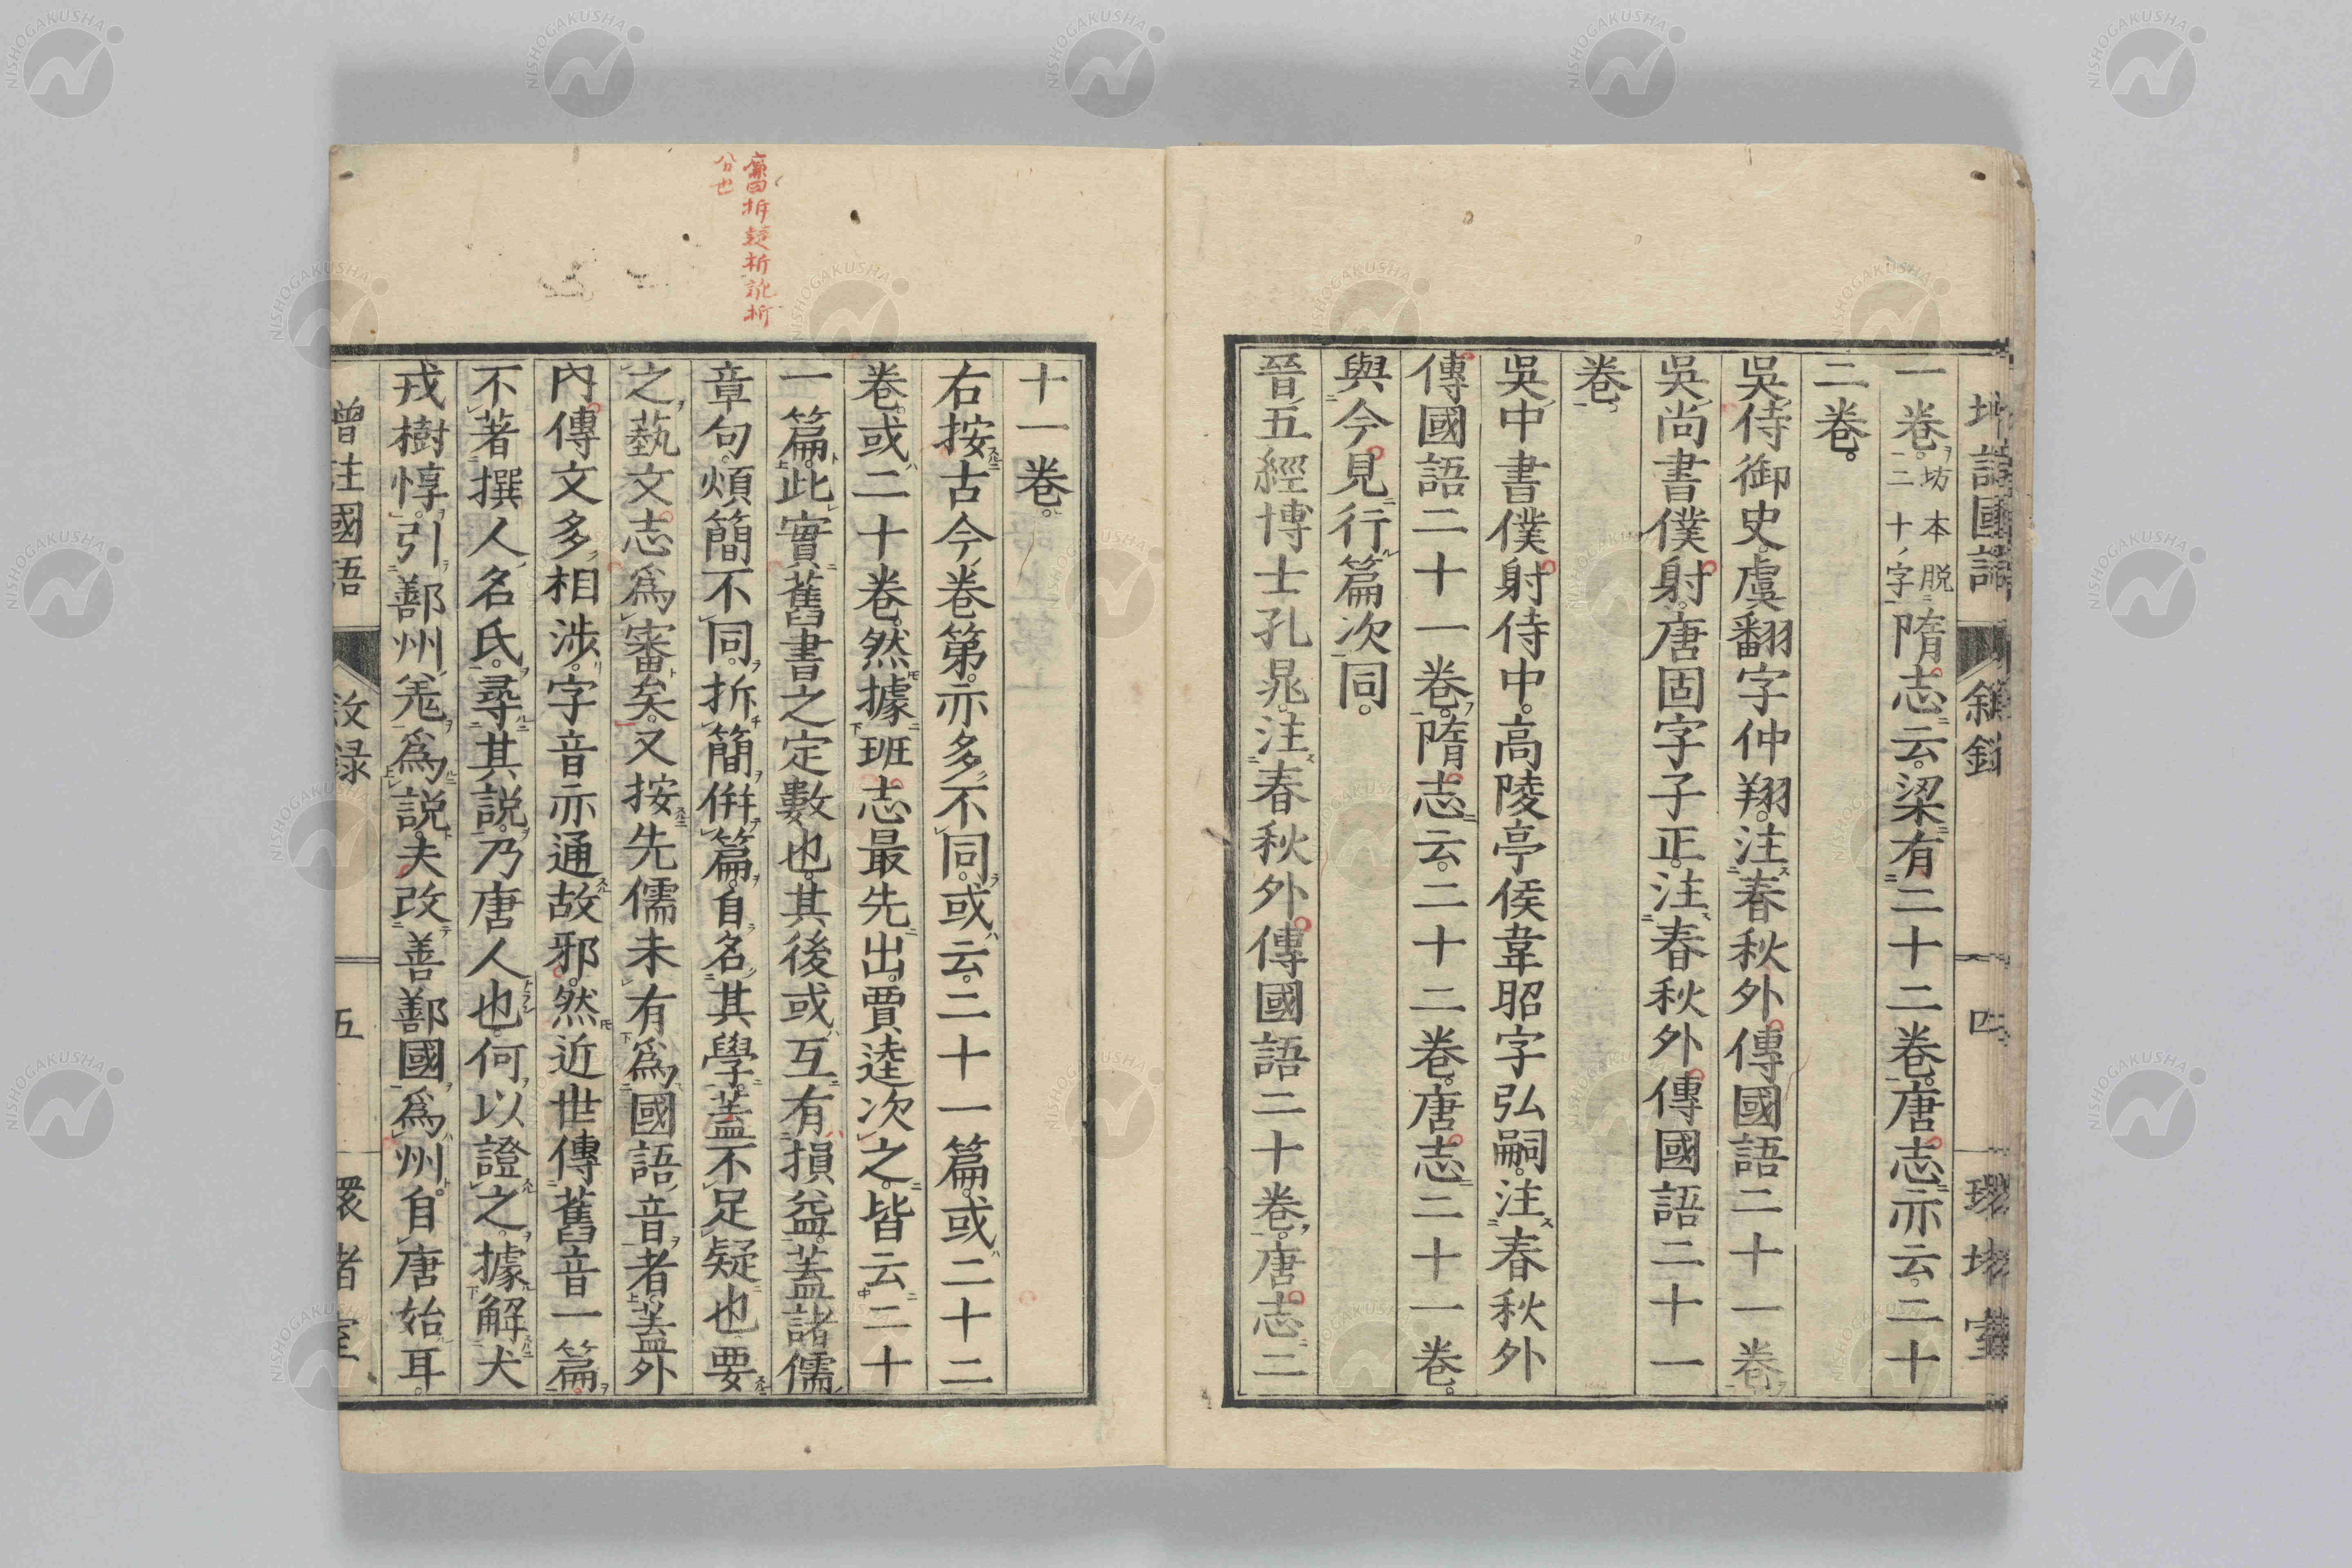 一卷。坊本脱二十字隋志云。梁有二十二卷。唐志亦云。二十
二卷。
吳侍御史。虞翻字仲翔。注春秋外傳國語二十一卷
吳尚書僕射。唐固字子正。注春秋外傳國語二十一
卷
吳中書僕射侍中。高陵亭侯韋昭字弘嗣。注春秋外
傳國語二十一卷。隋志云。二十二卷。唐志二十一卷。
與今見行篇次同。
晉五經博士孔晁。注春秋外傳國語二十卷。唐志二
四
十一卷。
右按古今卷第。亦多不同。或云。二十一篇。或二十二
卷。或二十卷。然據班志最先出。賈逵次之。皆云二十
一篇。此實舊書之定數也。其後或互有損益。蓋諸儒
章句。煩簡不同。拆簡併篇。自名其學。蓋不足疑也要
之藝文志爲審矣。又按先儒未有爲國語音者。蓋外
內傳文多相涉。字音亦通故邪。然近世傳舊音一篇。
不著撰人名氏。尋其説。乃唐人也。何以證之。據解犬
戎樹惇。引鄯州羌爲説。夫改善鄯國爲州。自唐始耳。
增註國語
敘錄
五
環堵室
NISHOGAKUSHA